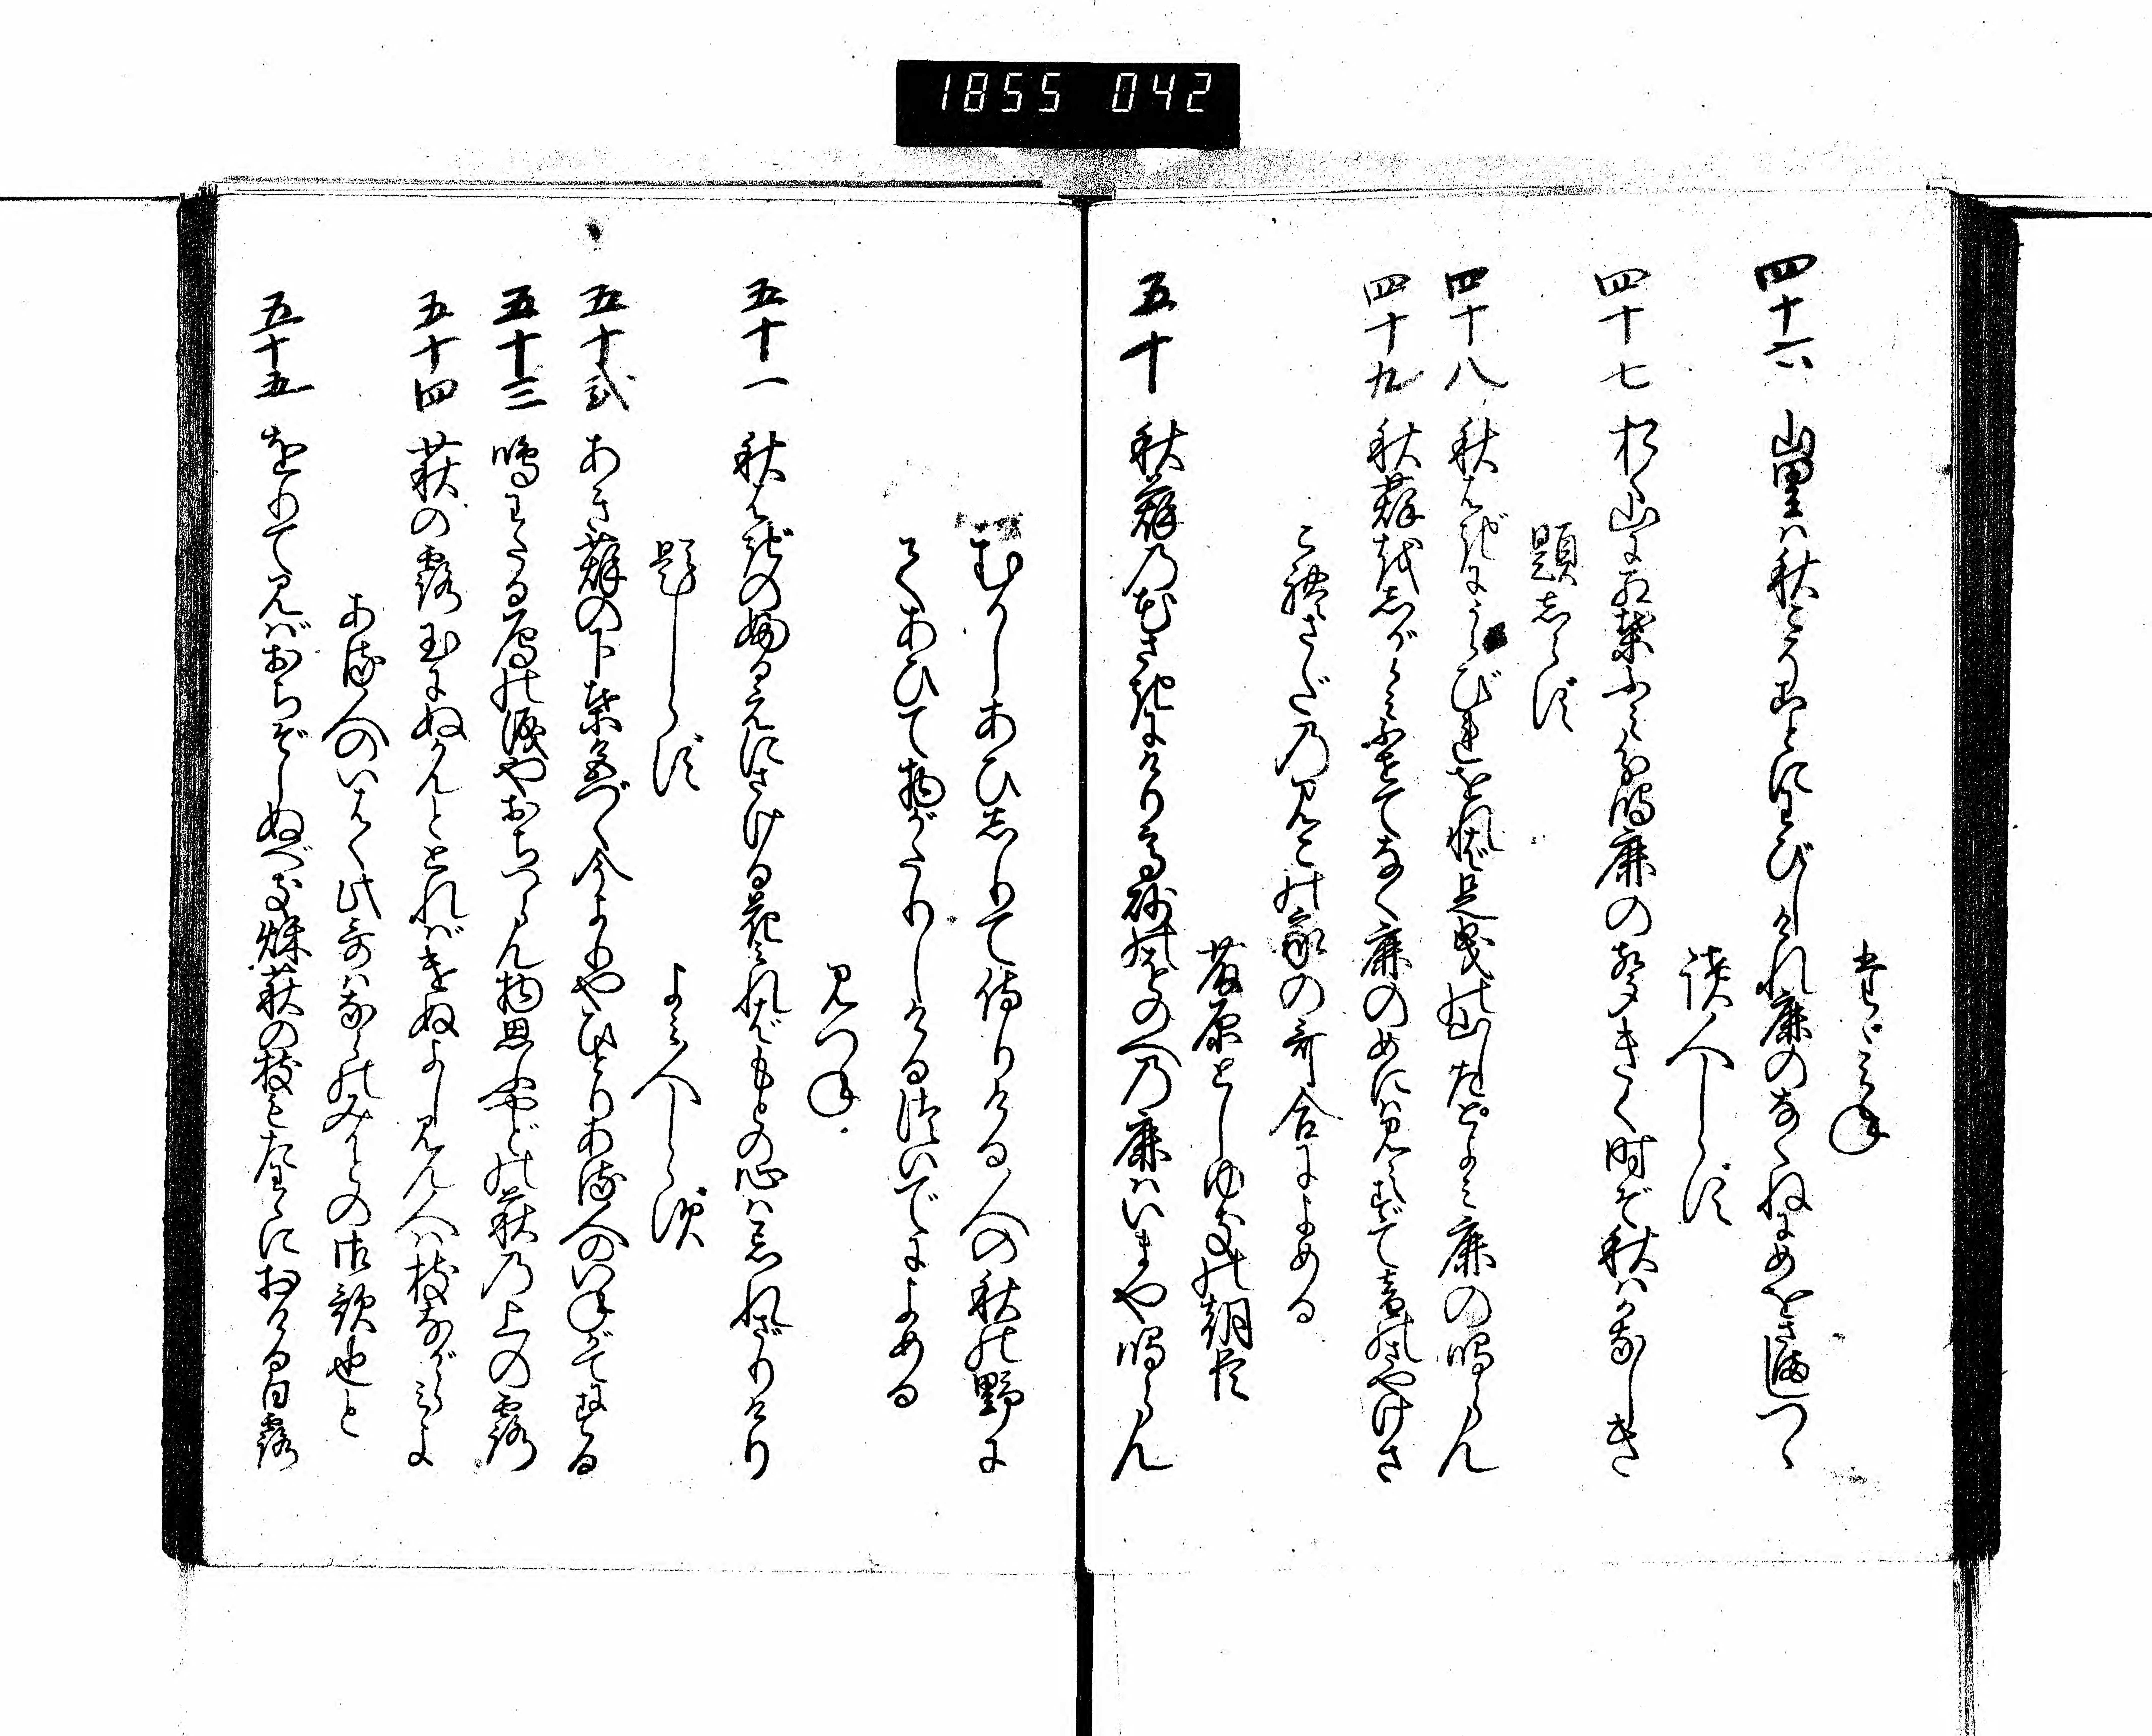 1855 042
たゞみね
四十六 山里は秋こそことにわびしけれ鹿のなくねにめをさましつゝ
読人しらず
四十七 おく山に紅葉ふみわけ鳴鹿の声きく時ぞ秋はかなしき
題しらず
四十八 秋はぎにうらびれをれば足曳の山下とよみ鹿の鳴らん
四十九 秋萩をしがらみふせてなく鹿のめには見えずて音のさやけさ
これさだのみこの家の哥合によめる
藤原としゆきの朝臣
五十 秋萩の花さきにけり高砂のをのへの鹿はいまや鳴らん
むかしあひしりて侍りける人の秋の野に
てあひて物がたりしけるついでによめる
みつね
五十一 秋はぎの婦るえにさける花みればもとの心は忘れざりけり
題しらず
よみ人しらず
五十弐 あき萩の下葉色づく今よりやひとりある人のいねがてにする
五十三 鳴わたる雁の涙やおちつらん物思ふやどの萩の上の露
五十四 萩の露玉にぬかんととればけぬよし見ん人は枝ながらみよ
ある人のいはく此哥はならのみかどの御歌也と
五十五 をりて見ばおちぞしぬべき秋萩の枝もたわゝにおける白露